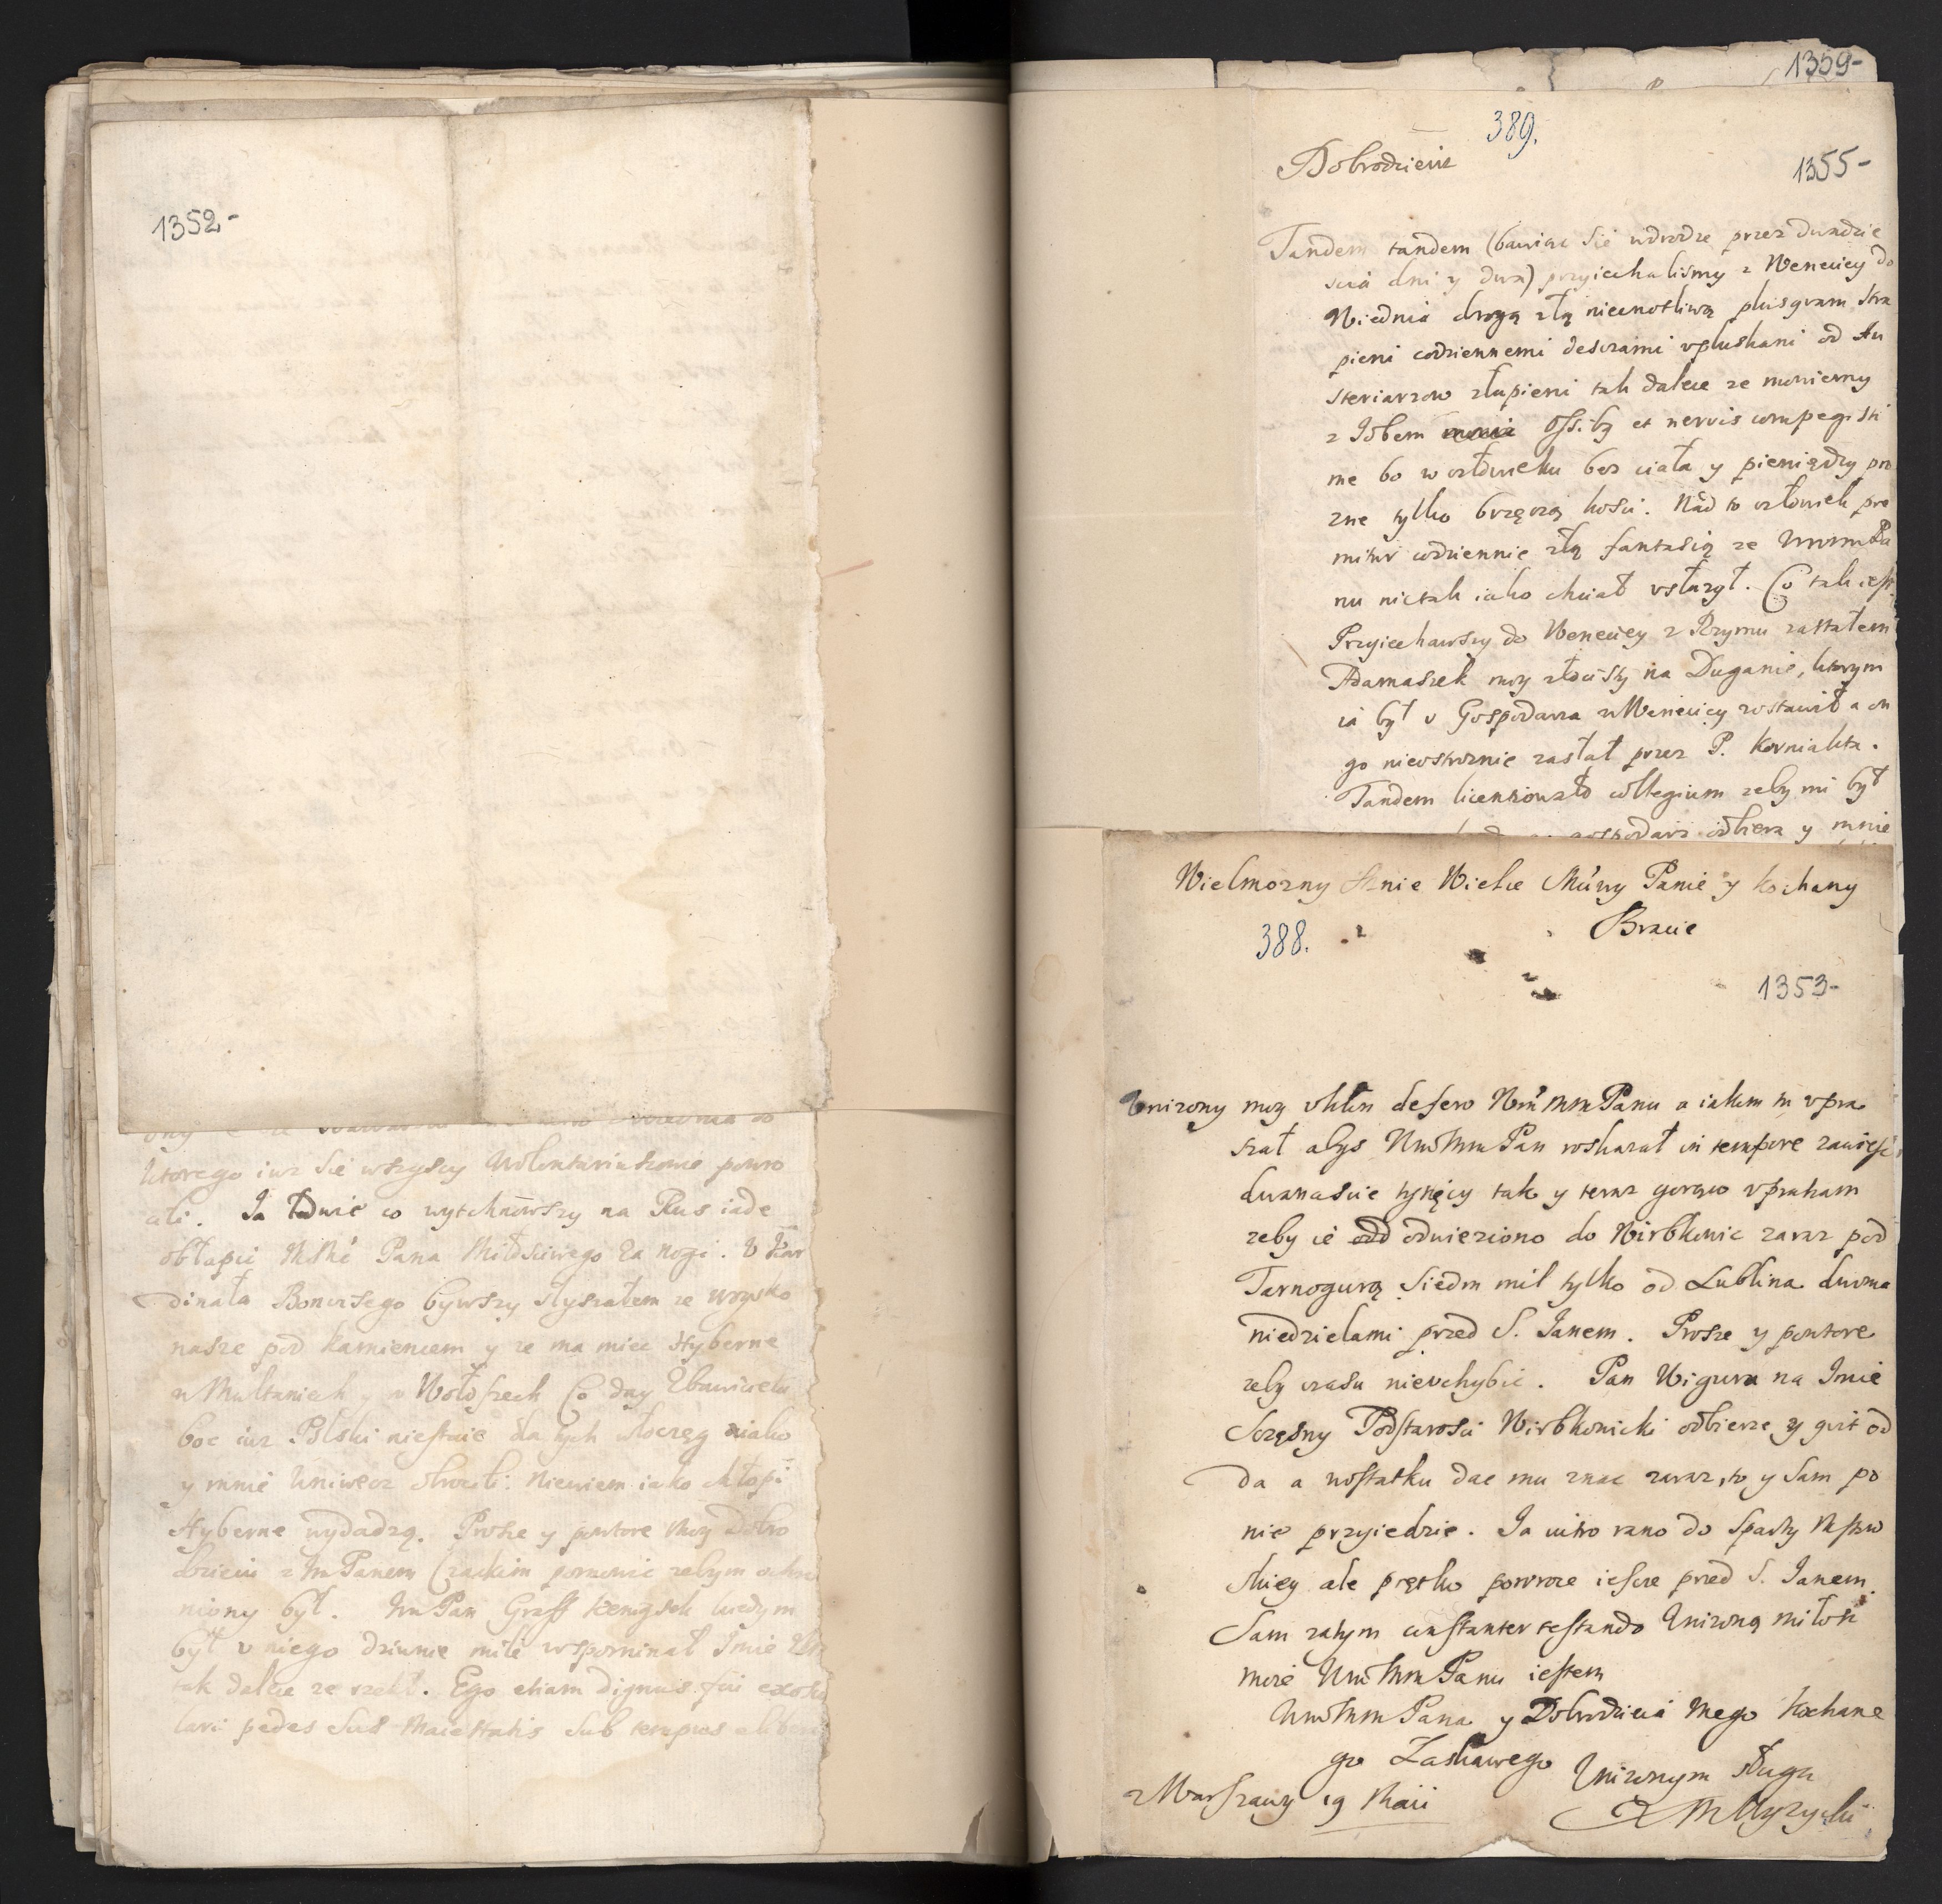 1352-
ktorego iuz Sie wszyscy
ali. Ja co wytchnowszy na Rus iade
obłapic Pana Miłosciwego za nogi. U Kar
dinała Bonwisego bywszy słyszałem ze woysko
nasze pod Kamiencem y ze ma miec Hyberne
w Multaniech y w Wołoszech Co day
boc iuz Polski niestaie dla tych włoczęg
y mnie Uniwecz obrocili. Niewiem iako chłopi
Hyberne wydadzą. Prosze y powtore moy Dobro
dzieiu z Im Panem
niony był. Im Pan Graff Kenigsek kiedym
był u niego dziwnie mile wspominał Imie
tak dalece ze rzekł. Ego etiam dignus fui exos
lari pedes Suae Maiestatis sub tempus
1359-
389.
Dobrodzieiu
1355-
Tandem tandem (bawiąc Sie wdrodze przez dwadzie
scia dni y dwa) przyiechalismy z Weneciey do
Wiednia drogą złą niecnotliwą plusquam Stra
pieni codziennemi desczami upluskani od Au
steriarzow złupieni tak dalece ze mowiemy
z Jobem Ossibus et nervis compegisti
me bo w człowieku bez ciała y pieniędzy pro
zne tylko brzęczą kosci. Nad to człowiek pre
mitur codziennie złą fantasią ze
nu nie tak iako chciał usłuzył. Co tak iest.
Przyiechawszy do Weneciey z Rzymu zastałem
Adamaszek moy złocisty na Duganie, ktorym
ia był u Gospodarza w Weneciey zostawił a on
go nieostroznie zasłał przez P. Korniakta.
Tandem collegium zeby mi był
gospodarz odbiera y mnie
Wielmozny Mnie Wielce Mciwy Panie y Kochany
Bracie
388.
1353-
Unizony moy defero Panu a iakem upra
szał abys Pan roskazał in tempore zawiesc
dwanascie tysięcy tak y teraz gorąco upraszam
zeby ie odwieziono do Wirbkowic zaraz pod
Tarnogurą Siedm mil tylko od Lublina dwoma
niedzielami przed S. Janem. Prosze y powtore
zeby czasu nieuchybic. Pan Wigura na Imie
Sczęsny Podstarosci Wirbkowicki odbierze y qwit od
da a wostatku dac mu znac zaraz, to y Sam po
nie przyiedzie. Ja iutro rano do Spasky
skiey ale prętko powroce iescze przed S. Janem.
Sam zatym constanter testando Unizoną miłosc
moie Panu iestem
Pana y Dobrodzieia Mego Kochane
go Łaskawego Unizonym Sługą
z Warszawy 19 Maii